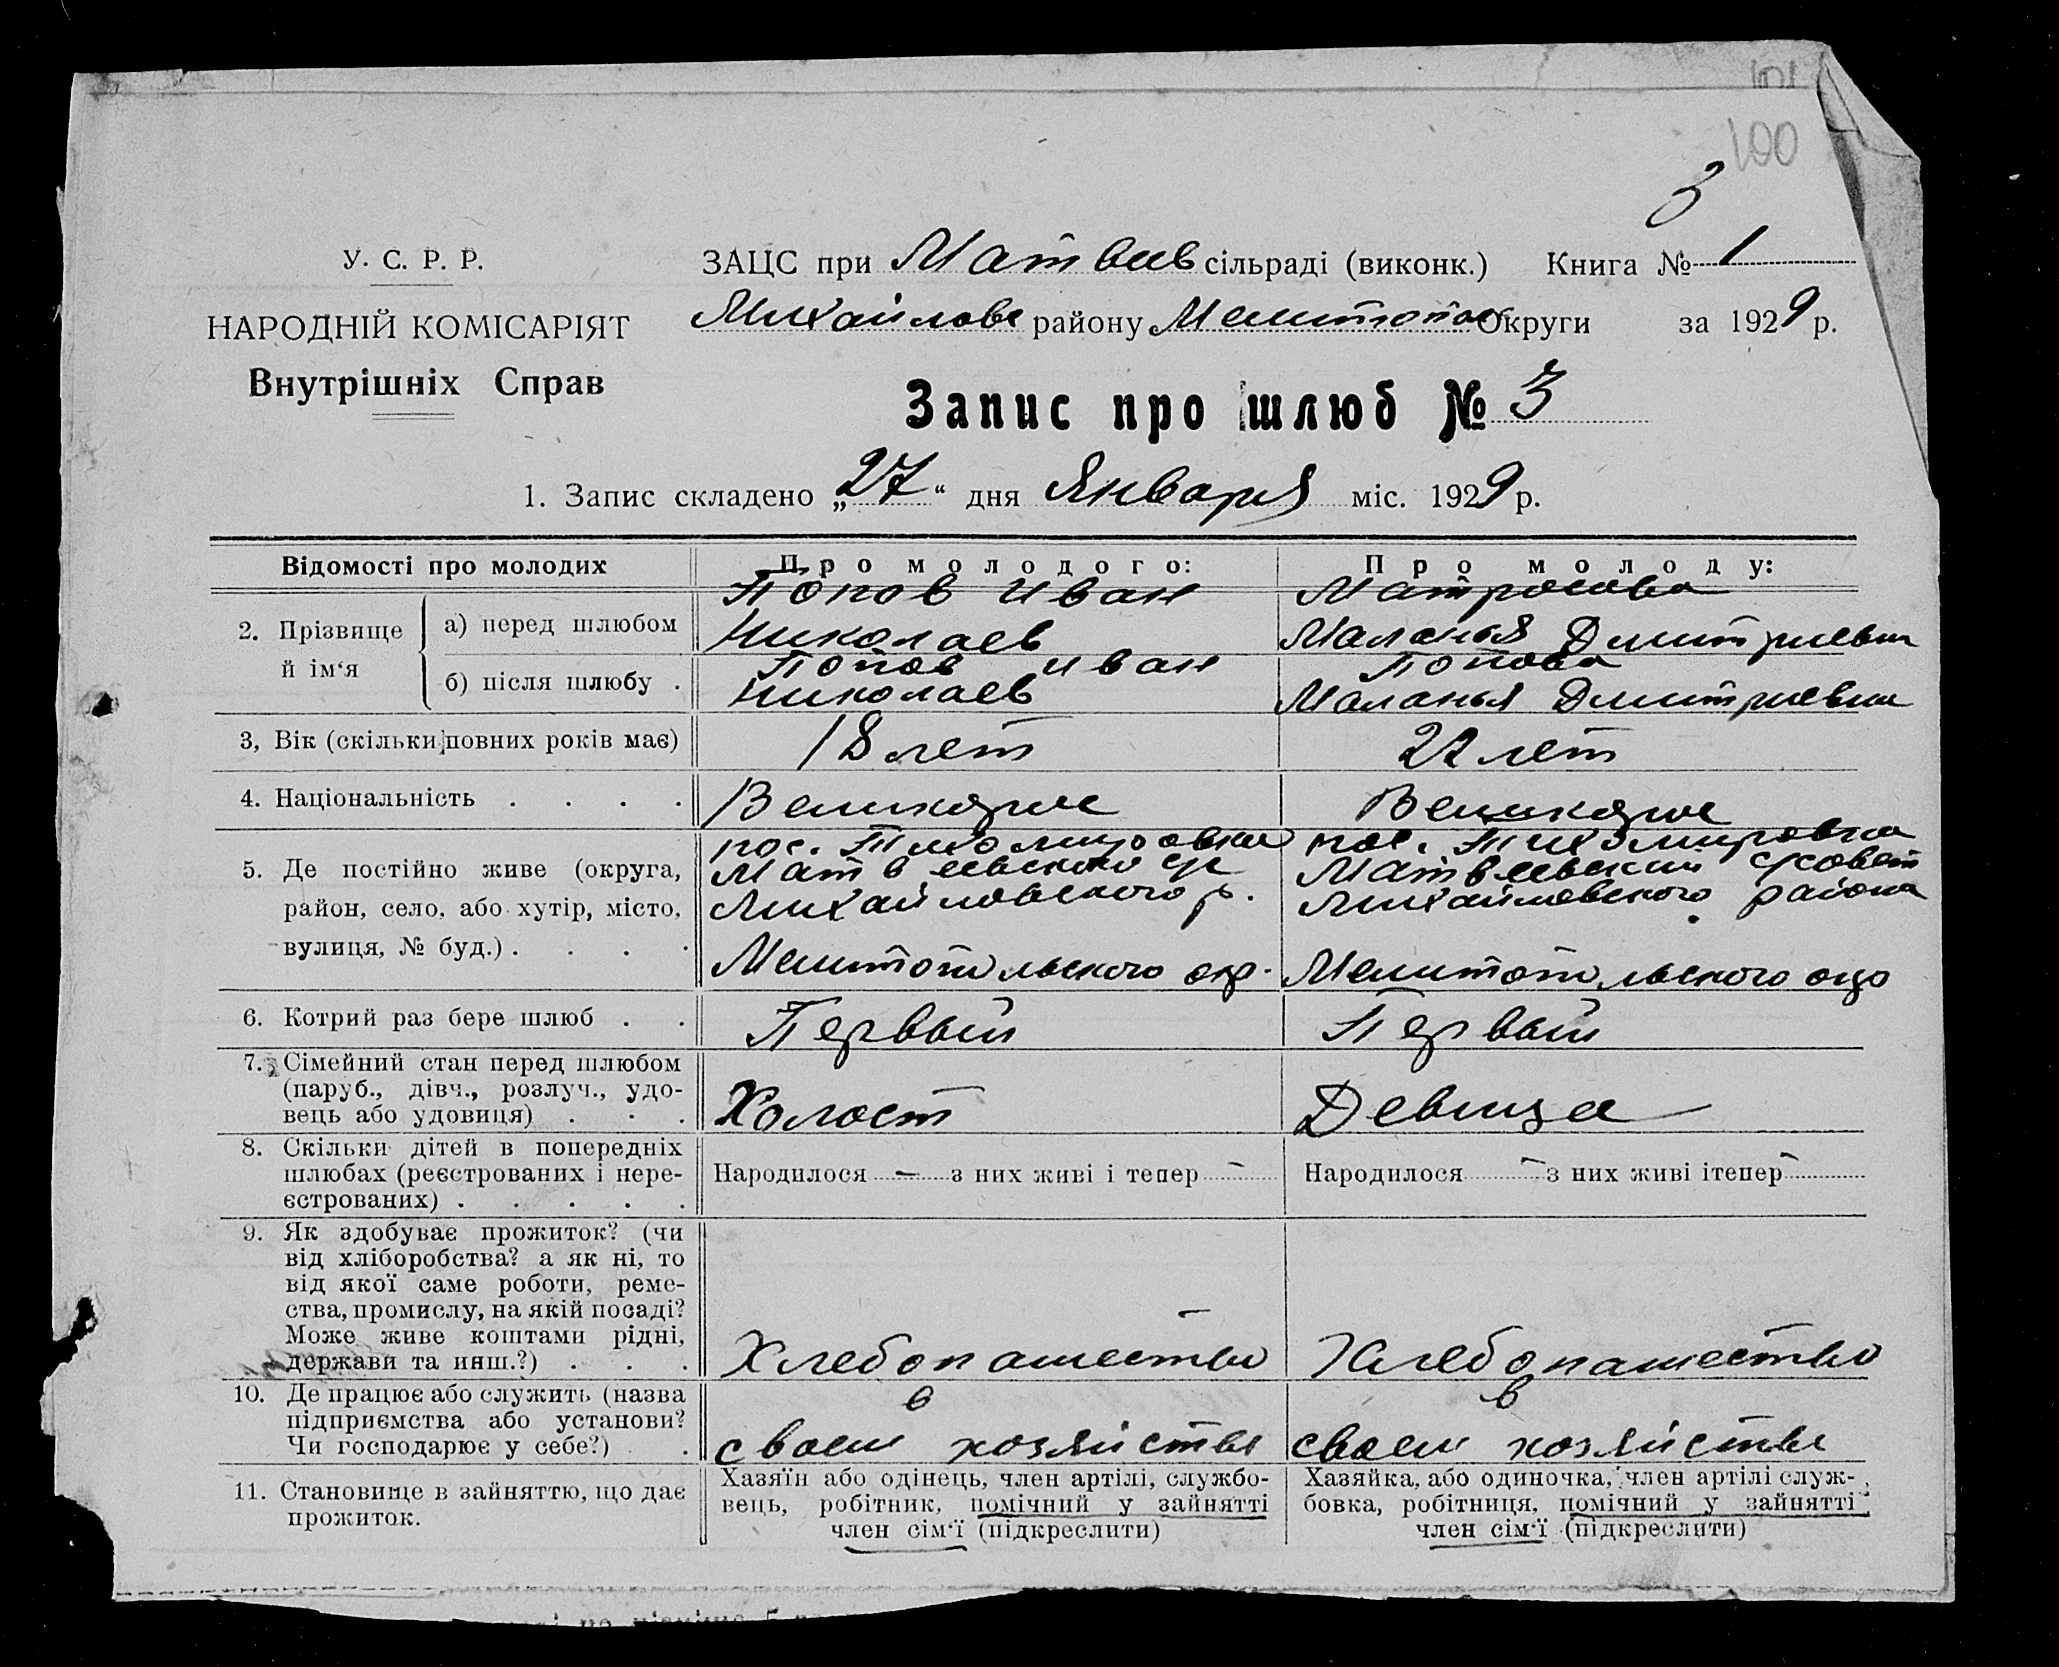 100
3
У. С. Р. Р.
НАРОДНІЙ КОМІСАРІЯТ
Внутрішніх Справ
ЗАЦС при Матвеев сільраді (виконк.) Книга № 1
Михайлове району Мелитопол Округи за 1929 р.
Запис про шлюб № 3
1. Запис складено „27“ дня Января міс. 1929 р.
Відомості про молодих
Про молодого:
Про молоду:
2. Прізвище й ім‘я
а) перед шлюбом
Попов Иван
Николаев
Матросова
Маланья Дмитриевна
б) після шлюбу .
Попов Иван
Николаев
Попова
Маланья Дмитриевна
3, Вік (скільки повних років має)
18 лет
22 лет
4. Національність . . . .
Великорос
Великорос
5. Де постійно живе (округа,
район, село, або хутір, місто,
вулиця, № буд.) . . . .
пос. Тихомировка
Матвеевского ср
Михайловского р.
Мелитопольского окр.
пос. Тихомировка
Матвеевский с/совет
Михайловского района
Мелитопольского окр
6. Котрий раз бере шлюб . .
Первый
Первый
7. Сімейний стан перед шлюбом
(паруб., дівч., розлуч., удо-
вець або удовиця) . . .
Холост
Девица
8. Скільки дітей в попередніх
шлюбах (реєстрованих і нере-
єстрованих) . . . . .
Народилося — з них живі і тепер —
Народилося — з них живі ітепер —
9. Як здобуває прожиток? (чи
від хліборобства? а як ні, то
від якої саме роботи, реме-
ства, промислу, на якій посаді?
Може живе коштами рідні,
держави та инш.?) . . .
Хлебопашество
Хлебопашество
10. Де працює або служить (назва
підприємства або установи?
Чи господарює у себе?) .
в
своем хозяйстве
в
своем хозяйстве
11. Становище в зайняттю, що дає
прожиток.
Хазяїн або одінець, член артілі, службо-
вець, робітник, помічний у зайнятті
член сім‘ї (підкреслити)
Хазяйка, або одиночка, член артілі служ-
бовка, робітниця, помічний у зайнятті
член сім‘ї (підкреслити)